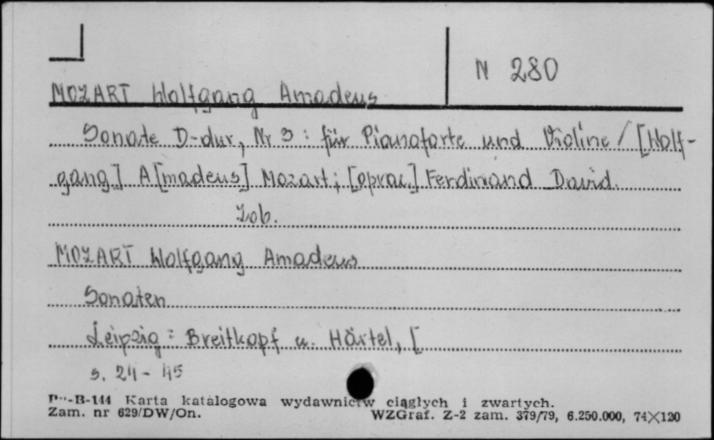 N 280
MOZART Wolfgang Amadeus
Sonate D-dur, Nr 3 : für Pianoforte und Violine / [Wolf-
gang] A[madeus] Mozart ; [oprac.] Ferdinand David.
Zob.
MOZART Wolfgang Amadeus
Sonaten
Leipzig : Breitkopf u. Härtel, [
s. 24-45
Pu-B-144 Karta katalogowa wydawnictw ciągłych i zwartych.
Zam. nr 629/DW/On. WZGraf. Z-2 zam. 379/79, 6.250.000, 74×120